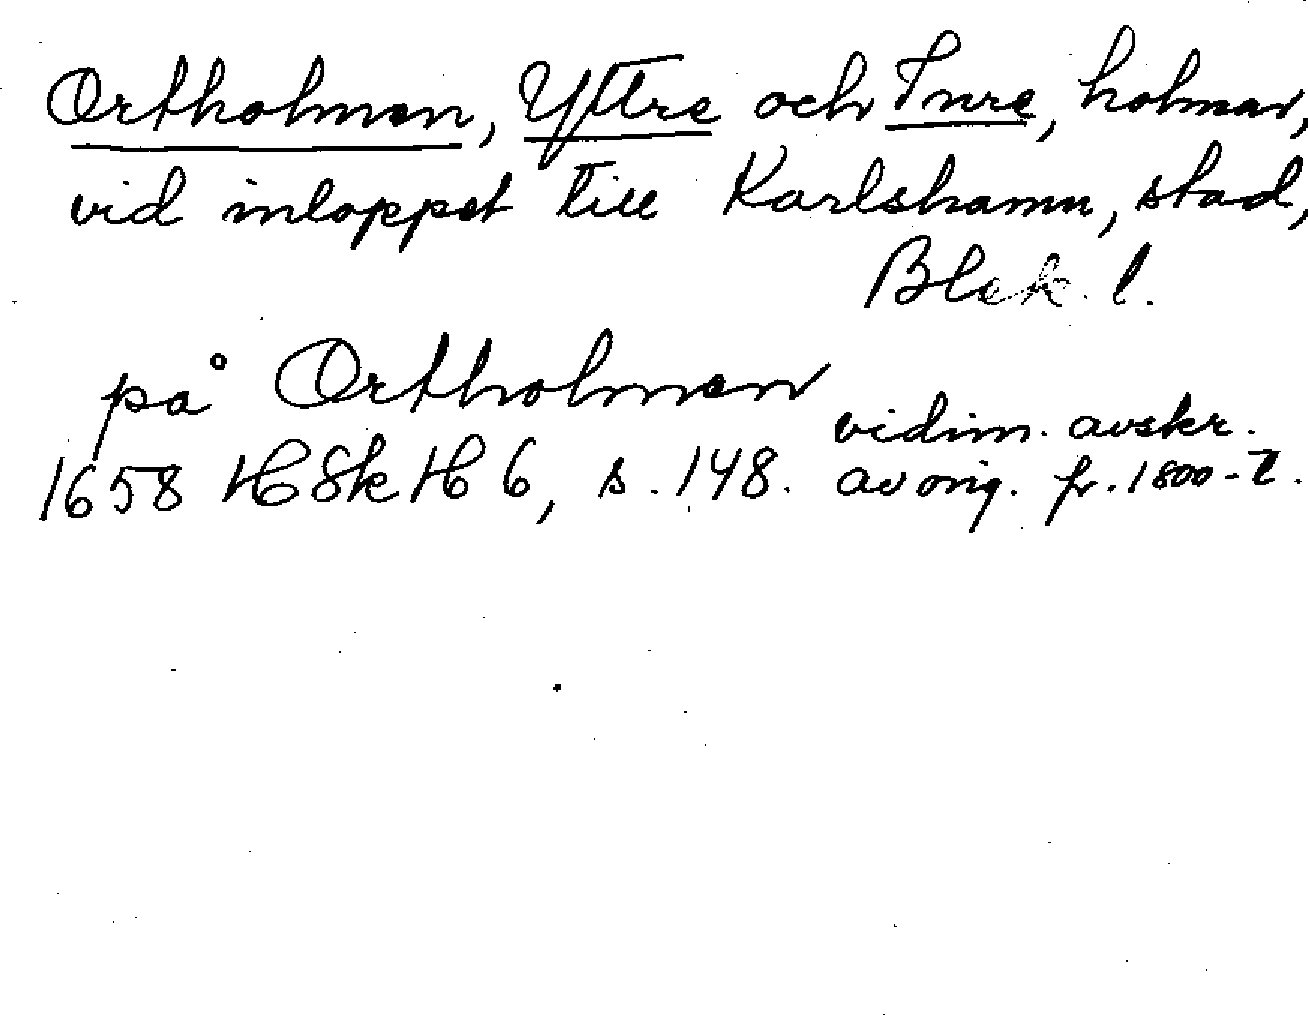 Ortholmen, Yttre och Inre, holmar,
vid inloppet till Karlshamn, stad,
Blek. l.
på Ortholmen
vidim. avskr.
1658 HSkH 6, s. 148. av orig. fr. 1800-t.